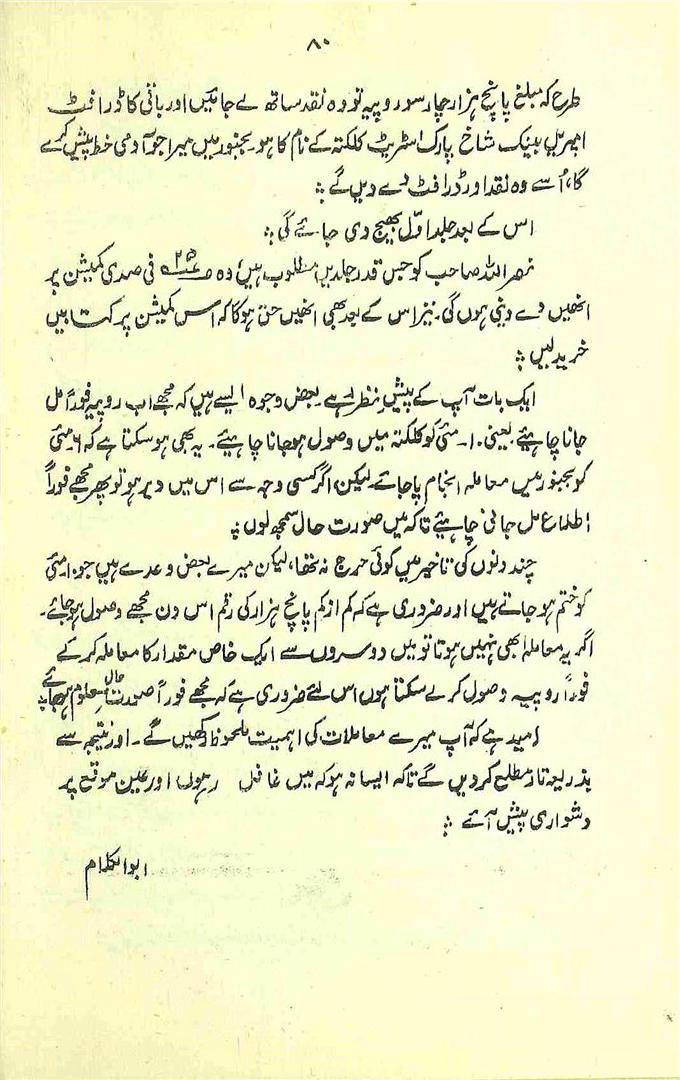 ۸۰
طرح کہ مبلغ پانچ ہزار چار سو روپیہ تو وہ نقد ساتھ لے جائیں اور باقی کا ڈرافٹ
امپریل بینک شاخ پارک اسٹریٹ کلکتہ کے نام کا ہو۔ بجنور میں میرا جو آدمی خط پیش کرے
گا، اُسے وہ نقد اور ڈرافٹ دے دیں گے ؞
اس کے بعد جلد اوّل بھیج دی جائے گی ؞
نصر اللہ صاحب کو جس قدر جلدیں مطلوب ہیں، وہ ۲۵ فی صدی کمیشن پر
انھیں دے دینی ہوں گی۔ نیز اس کے بعد بھی انھیں حق ہوگا کہ اس کمیشن پر کتابیں
خرید لیں ؞
ایک بات آپ کے پیش نظر رہے۔ بعض وجوہ ایسے ہیں کہ مجھے اب روپیہ فوراً مل
جانا چاہیے۔ یعنی ۱۰۔ مئی کو کلکتہ میں وصول ہوجانا چاہیئے۔ یہ بھی ہو سکتا ہے کہ ۶ مئی
کو بجنور میں معاملہ انجام پا جائے لیکن اگر کسی وجہ سے اس میں دیر ہو تو پھر مجھے فوراً
اطلاع مل جانی چاہیئے تاکہ میں صورت حال سمجھ لوں ؞
چند دنوں کی تاخیر میں کوئی حرج نہ تھا، لیکن میرے بعض وعدے ہیں جو ۱۰ مئی
کو ختم ہو جاتے ہیں اور ضروری ہے کہ کم از کم پانچ ہزار کی رقم اس دن مجھے وصول ہو جائے۔
اگر یہ معاملہ ابھی نہیں ہوتا تو میں دوسروں سے ایک خاص مقدار کا معاملہ کر کے
فوراً روپیہ وصول کر لے سکتا ہوں اس لئے ضروری ہے کہ مجھے فوراً صورت حال معلوم ہو جائے ؞
امید ہے کہ آپ میرے معاملات کی اہمیت ملحوظ رکھیں گے۔ اور نتیجہ سے
بذریعہ تار مطلع کر دیں گے تاکہ ایسا نہ ہو کہ میں غافل رہوں اور عین موقع پر
دشواری پیش آئے ؞
ابوالکلام